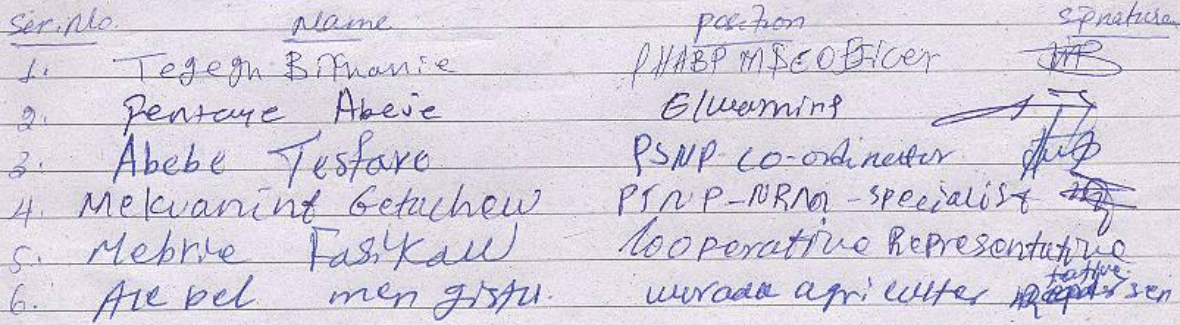 Ser.No. Name position signature
1. Tegegn Bifnanie PHABP M&E Officer
2. Pentaye Abeje E/warning
3. Abebe Tesfaye PSNP co-ordinator
4. Mekuanint Getachew PSNP-NRM-specialist
5. Mebrie Fasikaw Cooperative Representative
6. mengistu. worada agriculter